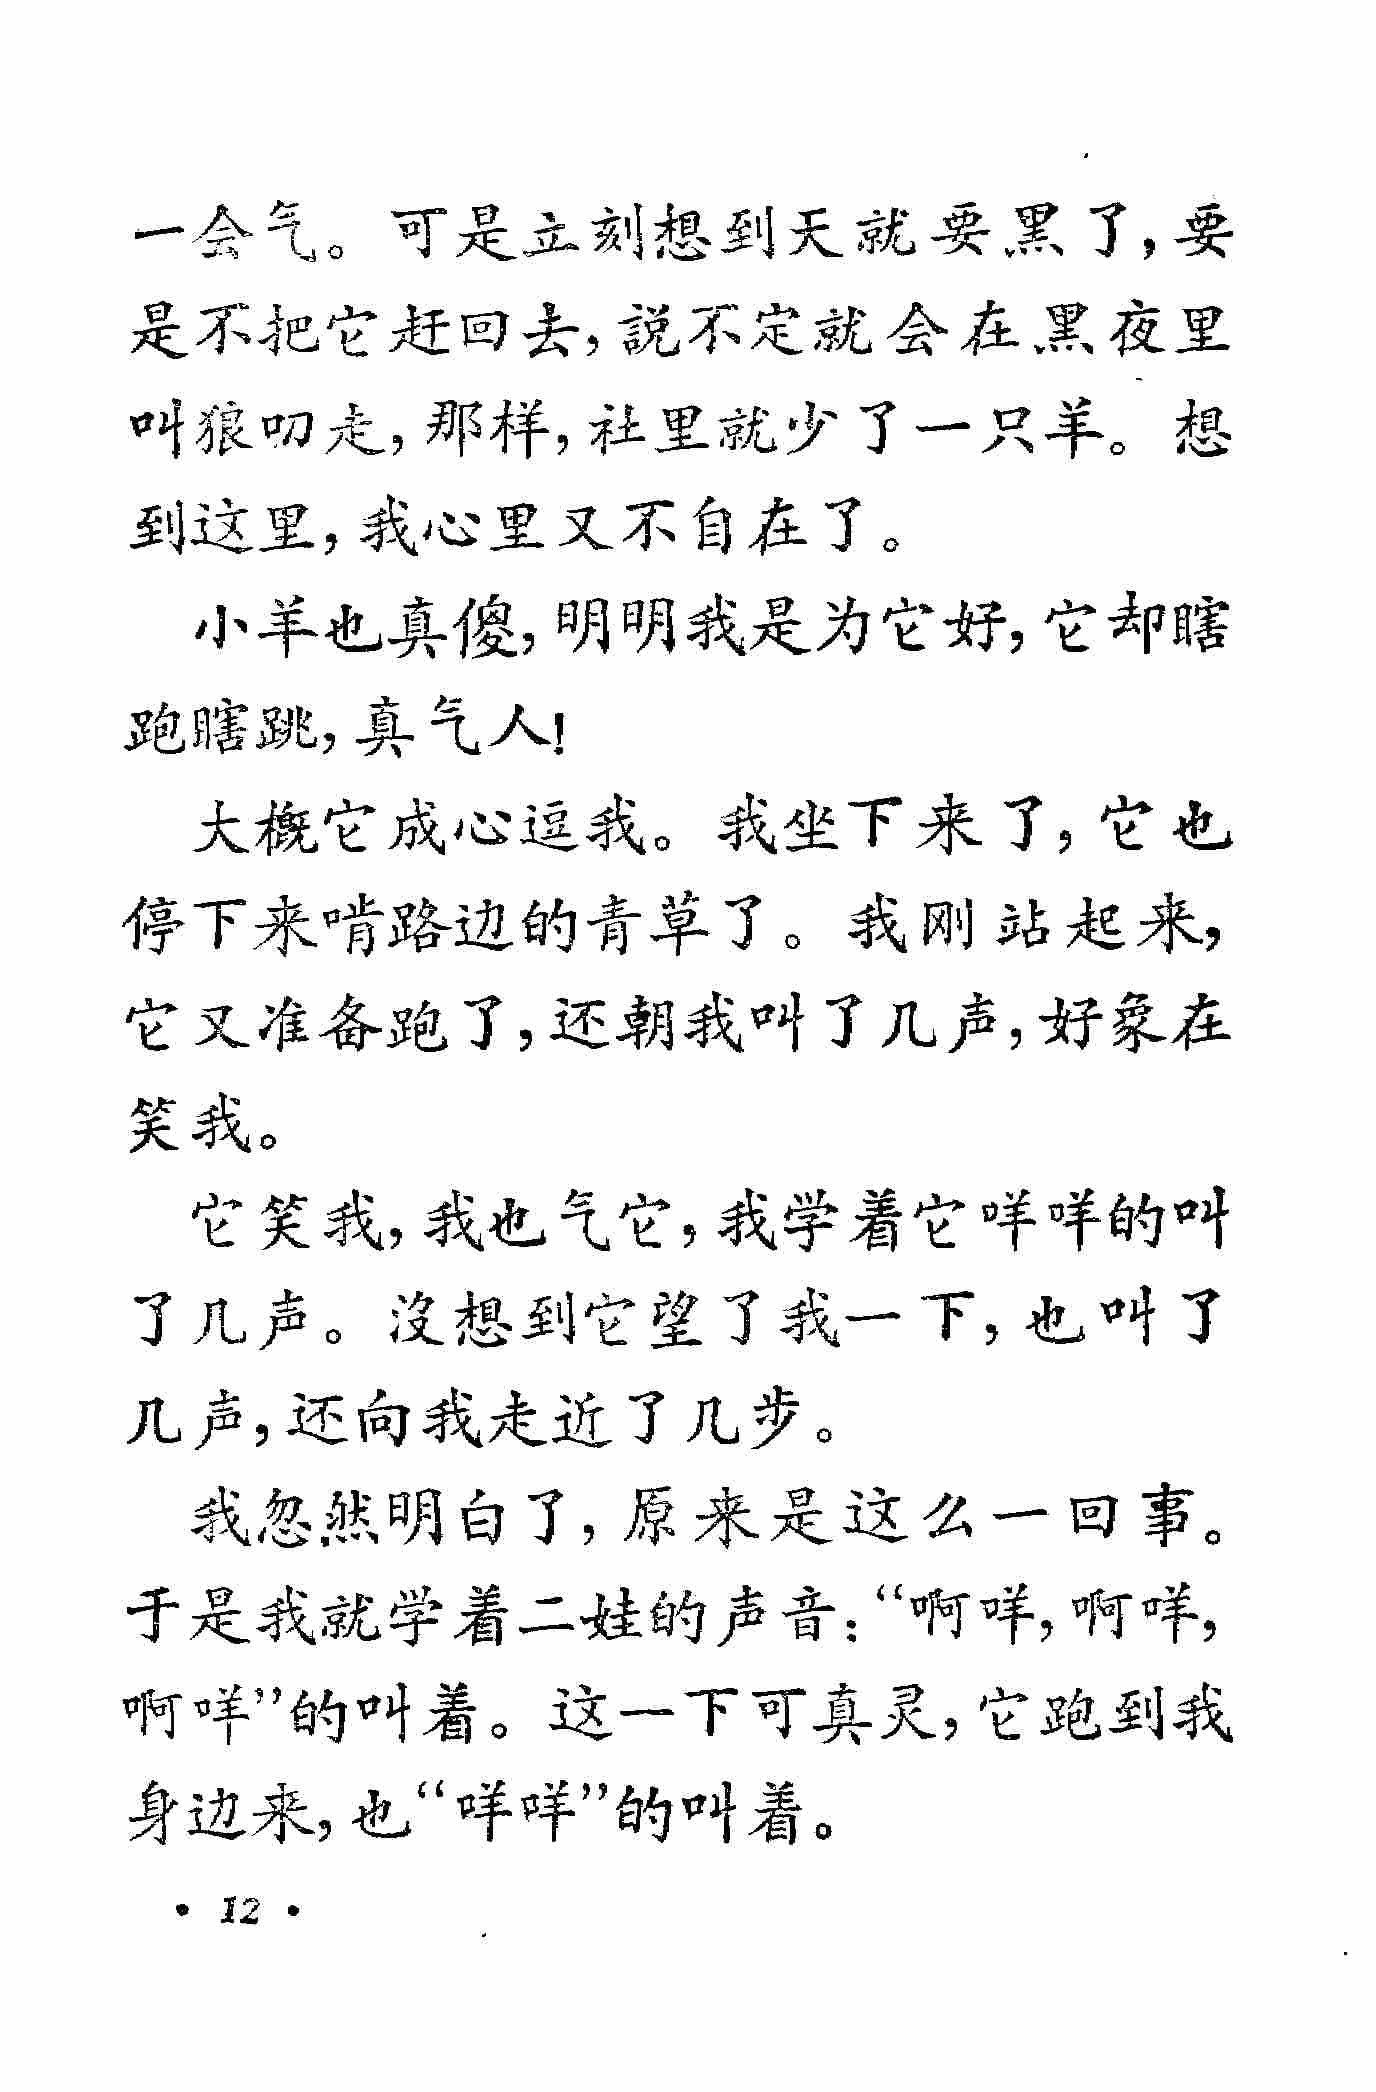 一会气。可是立刻想到天就要黑了，要
是不把它赶回去，説不定就会在黑夜里
叫狼叨走，那样，社里就少了一只羊。想
到这里，我心里又不自在了。
小羊也真傻，明明我是为它好，它却瞎
跑瞎跳，真气人！
大概它成心逗我。我坐下来了，它也
停下来啃路边的青草了。我刚站起来，
它又准备跑了，还朝我叫了几声，好象在
笑我。
它笑我，我也气它，我学着它咩咩的叫
了几声。沒想到它望了我一下，也叫了
几声，还向我走近了几步。
我忽然明白了，原来是这么一回事。
于是我就学着二娃的声音：“啊咩，啊咩，
啊咩”的叫着。这一下可真灵，它跑到我
身边来，也“咩咩”的叫着。
• 12 •